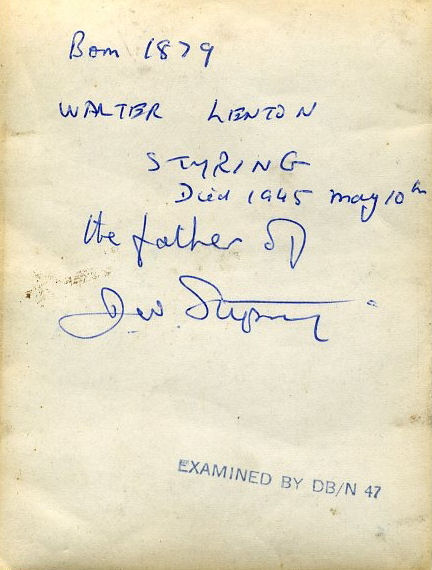 Born 1879
WALTER LENTON
STYRING
Died 1945 May 10th
the father of
D.W. Styring
EXAMINED BY DB/N 47